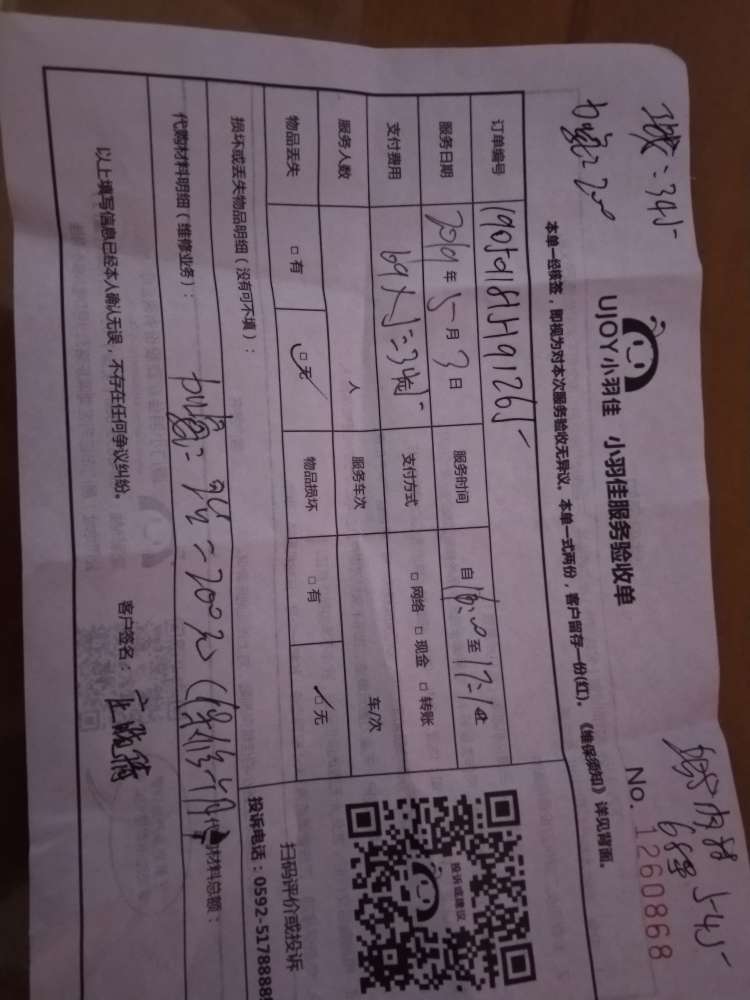 =345
UJOY小羽佳 小羽佳服务验收单
545
No. 1260868
本单一经核签，即视为对本次服务验收无异议。本单一式两份，客户留存一份(红)。《维保须知》详见背面。
订单编号
服务日期 2019年5月3日 服务时间 自16:00至17:10
支付费用 69×5=345 支付方式 □网络 □现金 □转账
服务人数 人 服务车次 车/次
物品丢失 □有 □无 物品损坏 □有 □无
损坏或丢失物品明细（没有可不填）：
代购材料明细（维修业务）： =200元 材料总额：
以上填写信息已经本人确认无误，不存在任何争议纠纷。 客户签名：
投诉或建议
扫码评价或投诉
投诉电话：0592-5178888